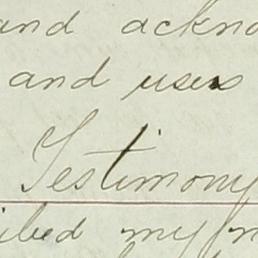 and ackno
and uses
Testimony
ibed my n